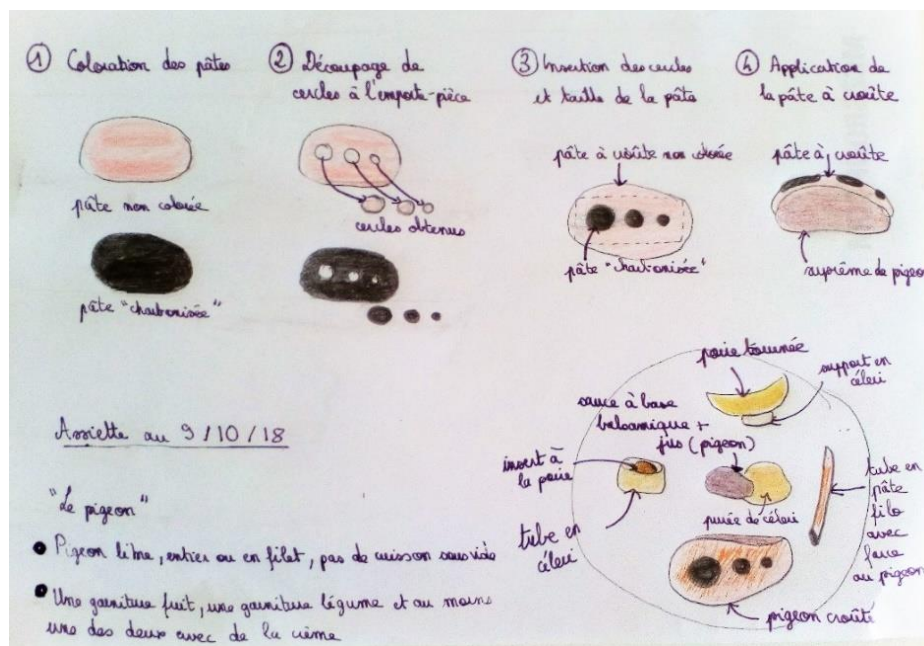 ① Coloration des pâtes
pâte non colorée
pâte "charbonisée"
② Découpage de
cercles à l'emporte-pièce
cercles obtenus
③ Insertion des cercles
et taille de la pâte
pâte à croûte non colorée
pâte "charbonisée"
④ Application de
la pâte à croûte
pâte à croûte
suprême de pigeon
Assiette au 9/10/18
"Le pigeon"
Pigeon libre, entier ou en filet, pas de cuisson sous vide
Une garniture fruit, une garniture légume et au moins
une des deux avec de la crème
poire tournée
support en
céleri
sauce à base
balsamique +
jus (pigeon)
insert à
la poire
tube en
céleri
purée de céleri
tube en
pâte
filo
avec
farce
au pigeon
pigeon croûté